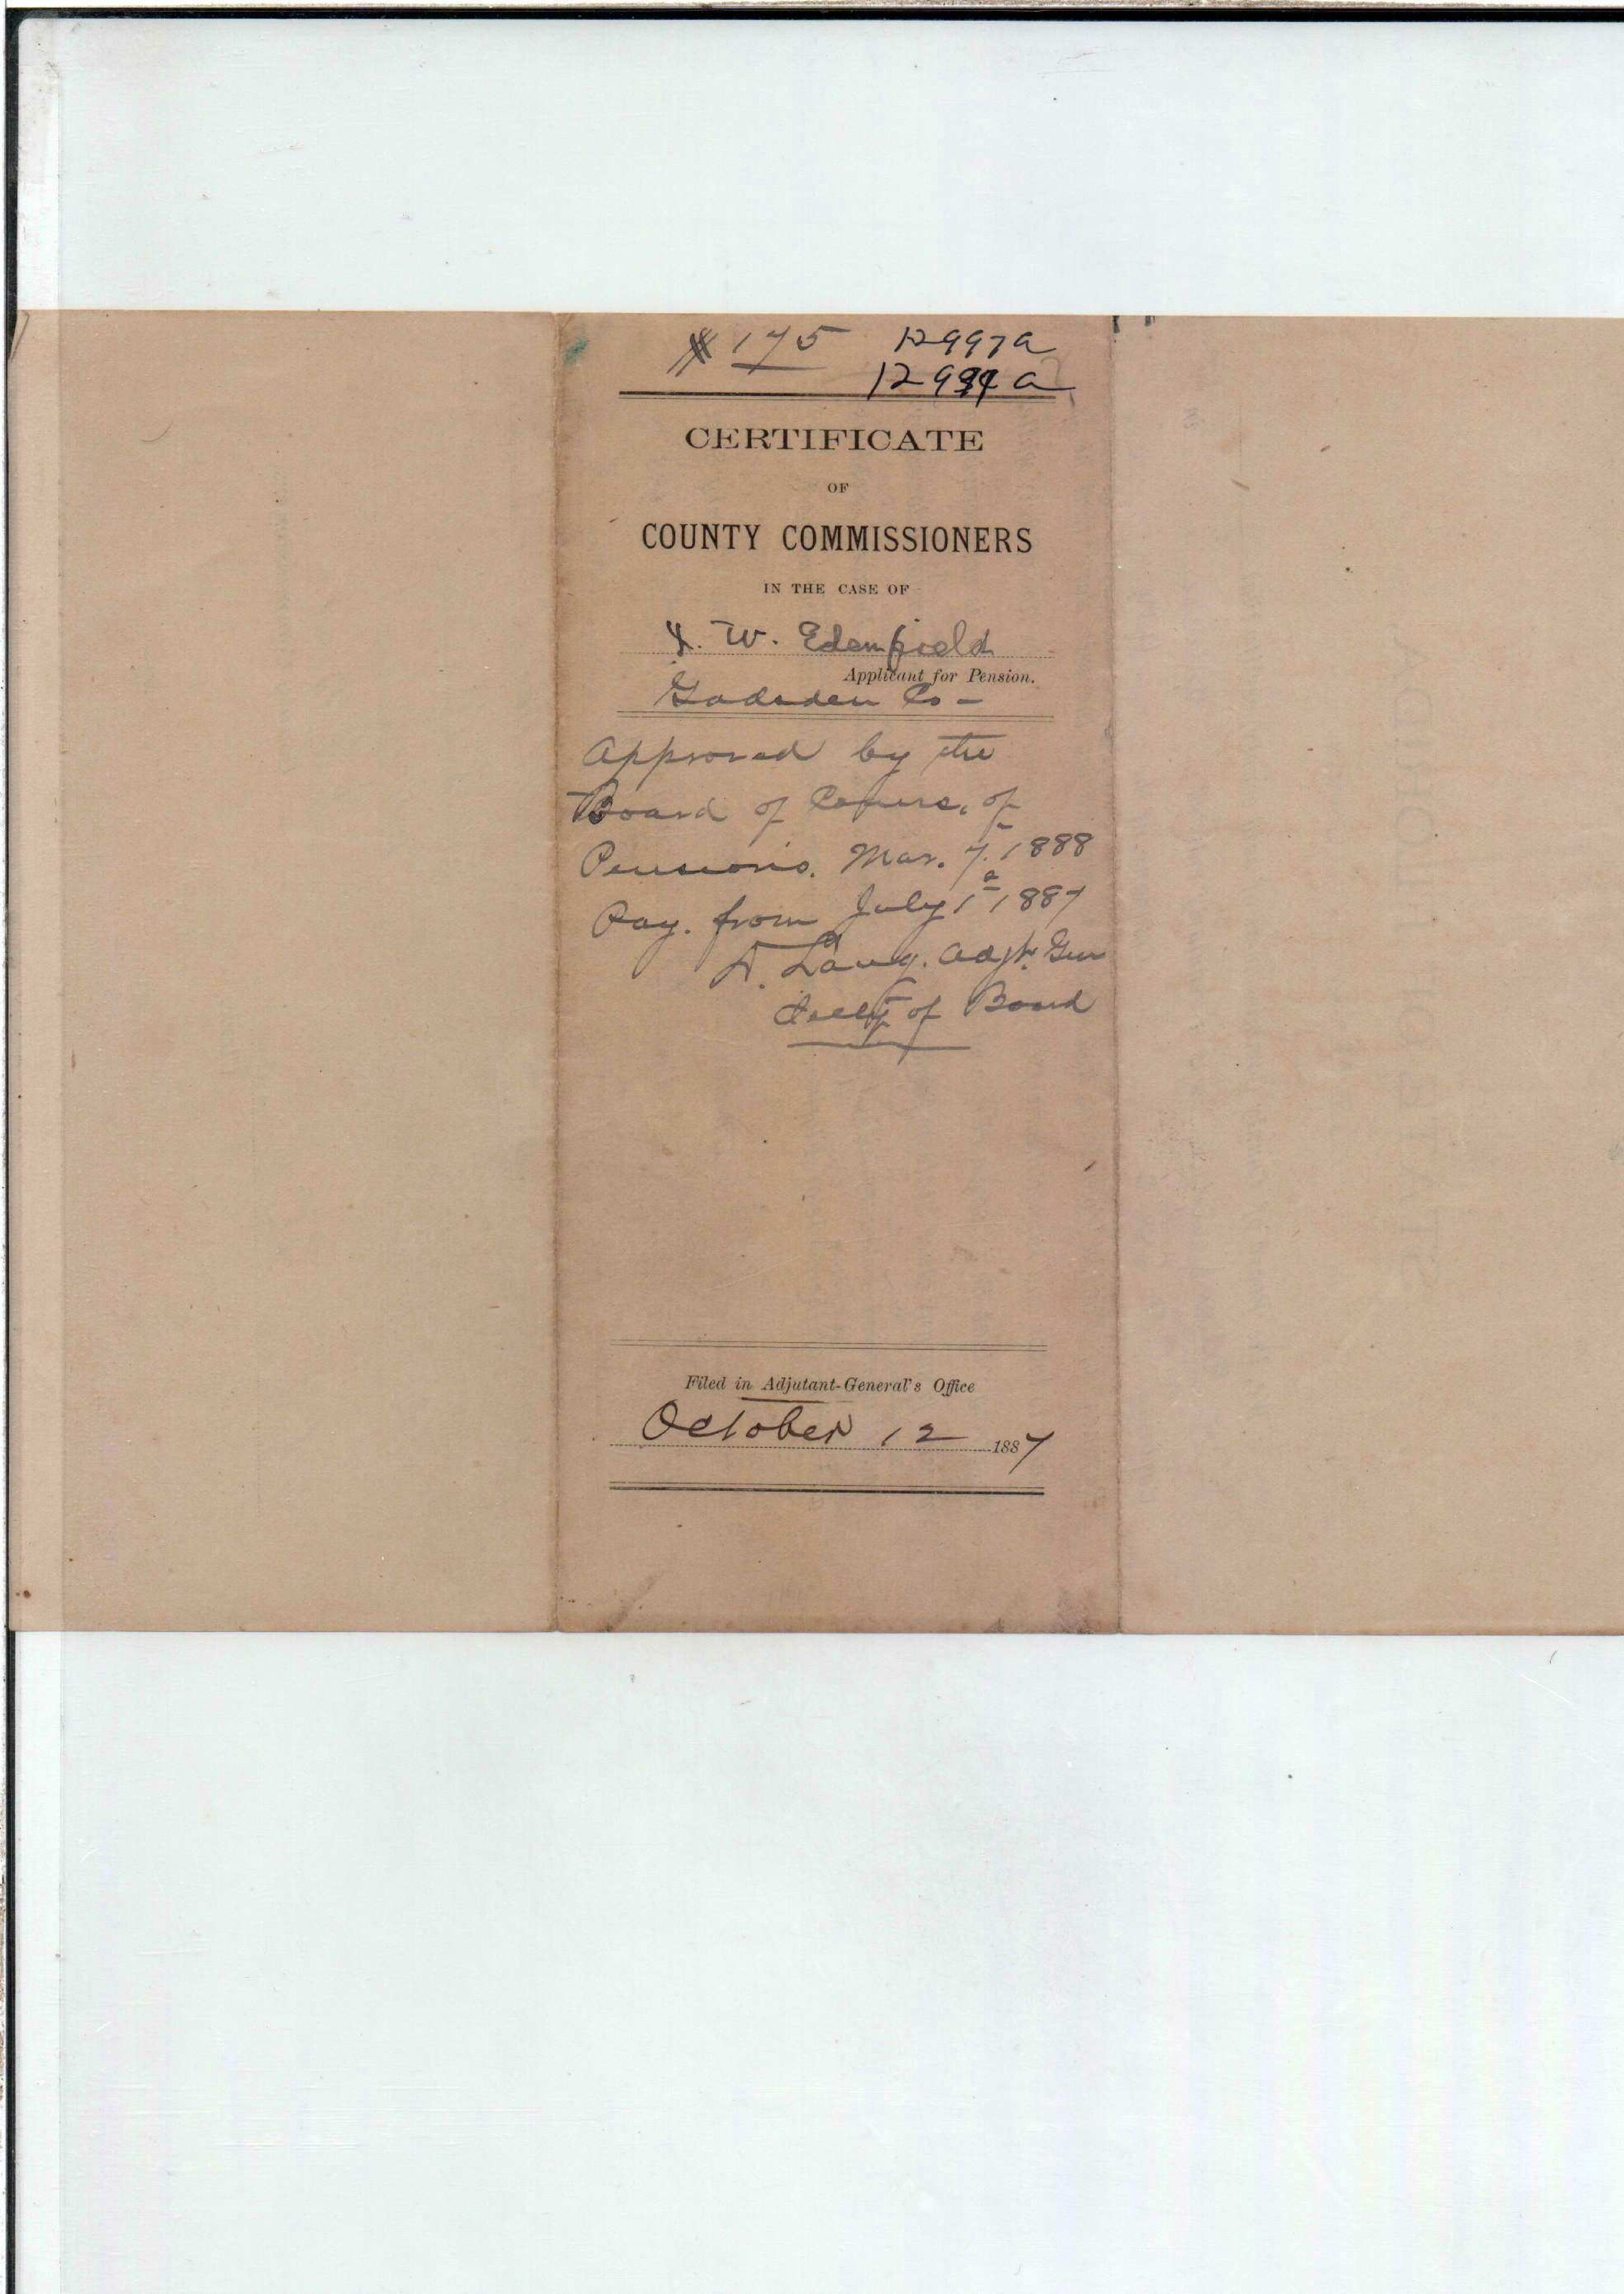 # 175 12997a
a
CERTIFICATE
OF
COUNTY COMMISSIONERS
IN THE CASE OF
W. Edenfield
Applicant for Pension.
Gadsden Co -
Approved by the
Board of Comrs. of
Pensions. Mar. 7. 1888
Pay. from July 1 1887
D. Lang. Adjt. Gen
Secty of Board
Filed in Adjutant-General's Office
October 12 1887